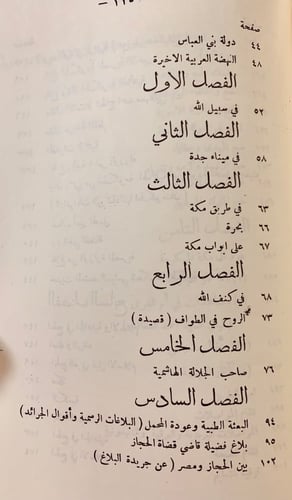 صفحة
دولة بني العباس ٤٤
النهضة العربية الاخيرة ٤٨
الفصل الاول
في سبيل الله ٥٢
الفصل الثاني
في ميناء جدة ٥٨
الفصل الثالث
في طريق مكة ٦٣
بحرة ٦٦
على ابواب مكة ٦٧
الفصل الرابع
في كنف الله ٦٨
الروح في الطواف ( قصيدة ) ٧٣
الفصل الخامس
صاحب الجلالة الهاشمية ٧٦
الفصل السادس
البعثة الطبية وعودة المحمل ( البلاغات الرسمية وأقوال الجرائد ) ٩٤
بلاغ فضيلة قاضي قضاة الحجاز ٩٥
بين الحجاز ومصر ( عن جريدة البلاغ ) ١٠٢